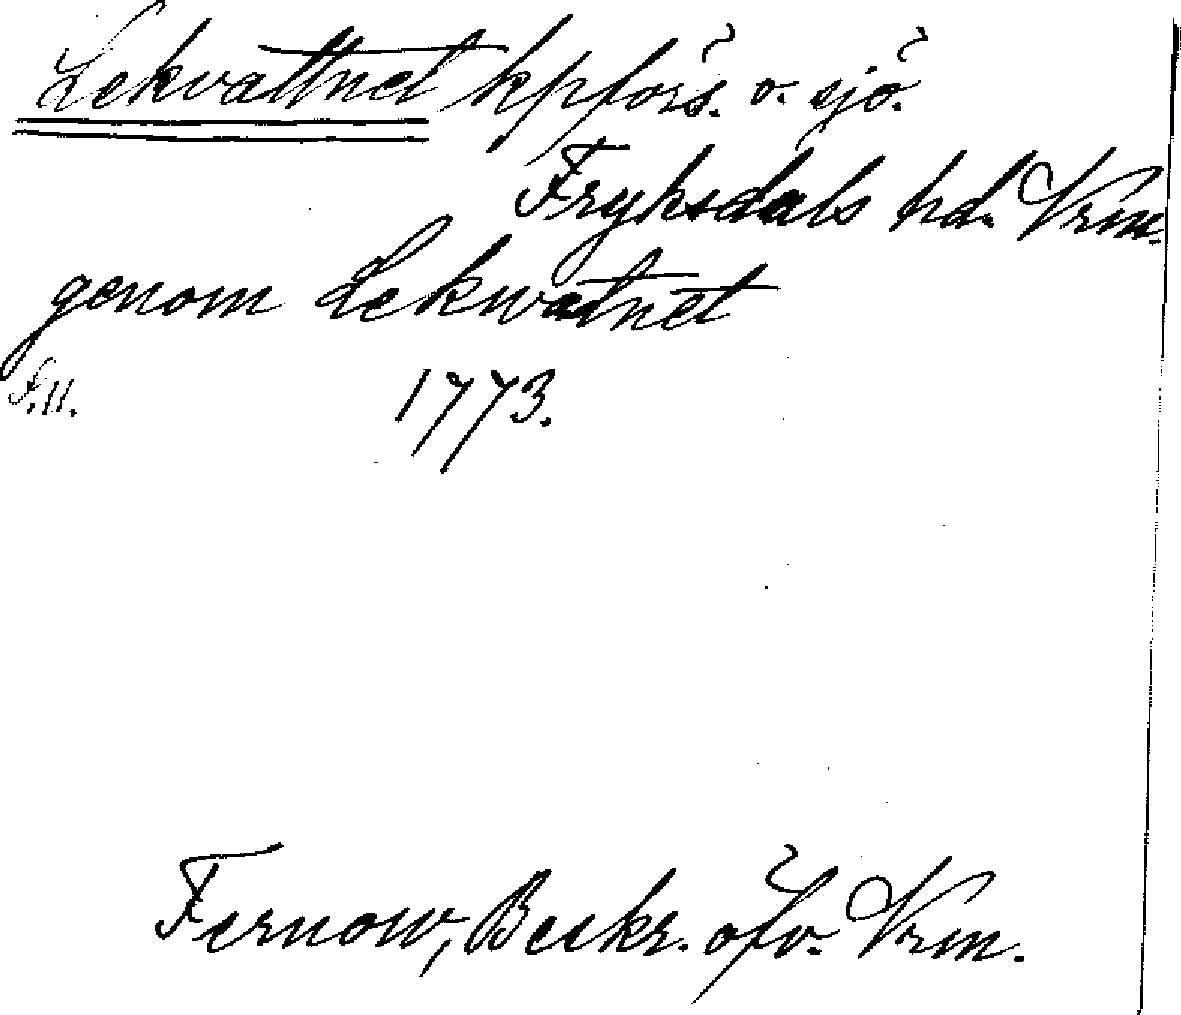 Lekvattnet kpförs. o. sjö.
Fryksdals hd. Vrm.
genom Lekwatnet
1773.
Fernow, Beskr. öfv. Vrm.